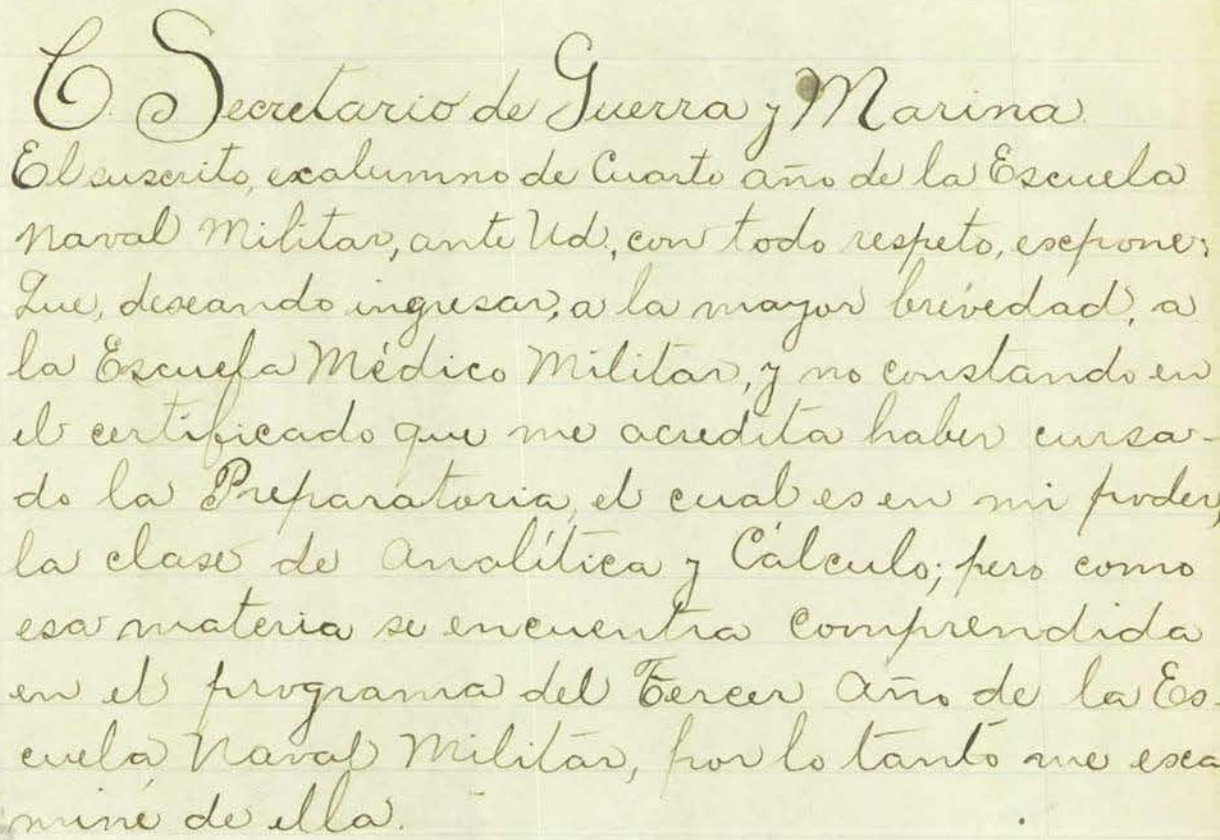 C. Secretario de Guerra y Marina
El suscrito, exalumno de Cuarto año de la Escuela
Naval Militar, ante Ud., con todo respeto, expone:
Que, deseando ingresar, a la mayor brevedad, a
la Escuela Médico Militar, y no constando en
el certificado que me acredita haber cursa-
do la Preparatoria, el cual es en mi poder,
la clase de Analítica y Cálculo; pero como
esa materia se encuentra comprendida
en el programa del Tercer Año de la Es-
cuela Naval Militar, por lo tanto me exa
miné de ella.